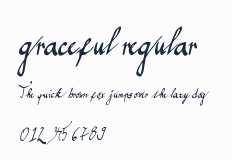 graceful regular
The quick brown fox jumps over the lazy dog
012 345 6789